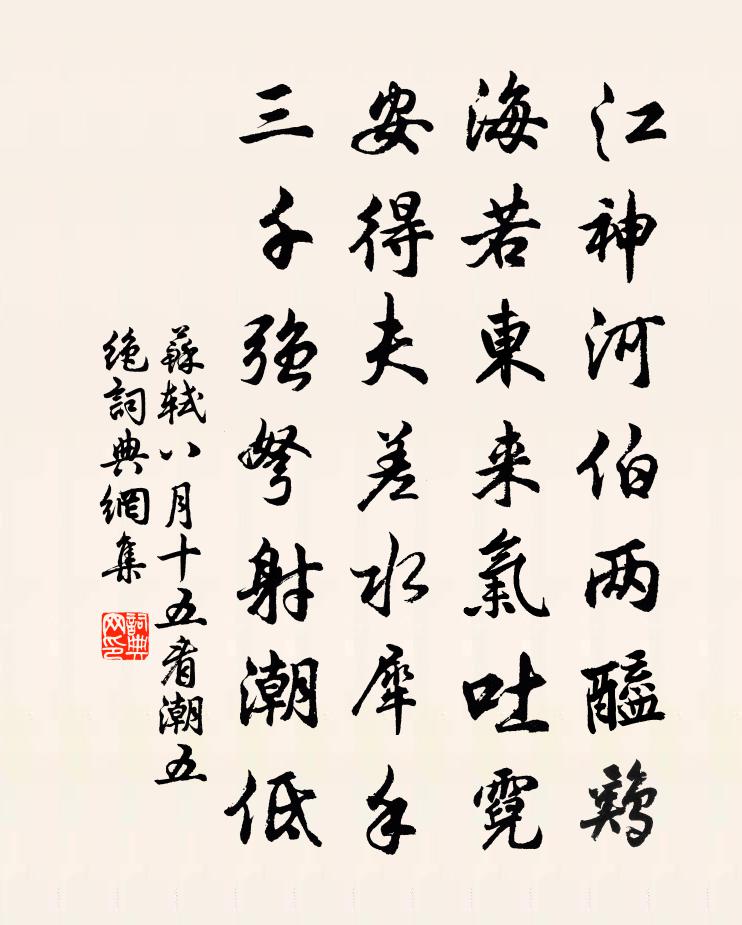 江神河伯两醯鷄
海若東来氣吐霓
安得夫差水犀手
三千强弩射潮低
蘇轼八月十五看潮五
絶詞典網集
詞典网印